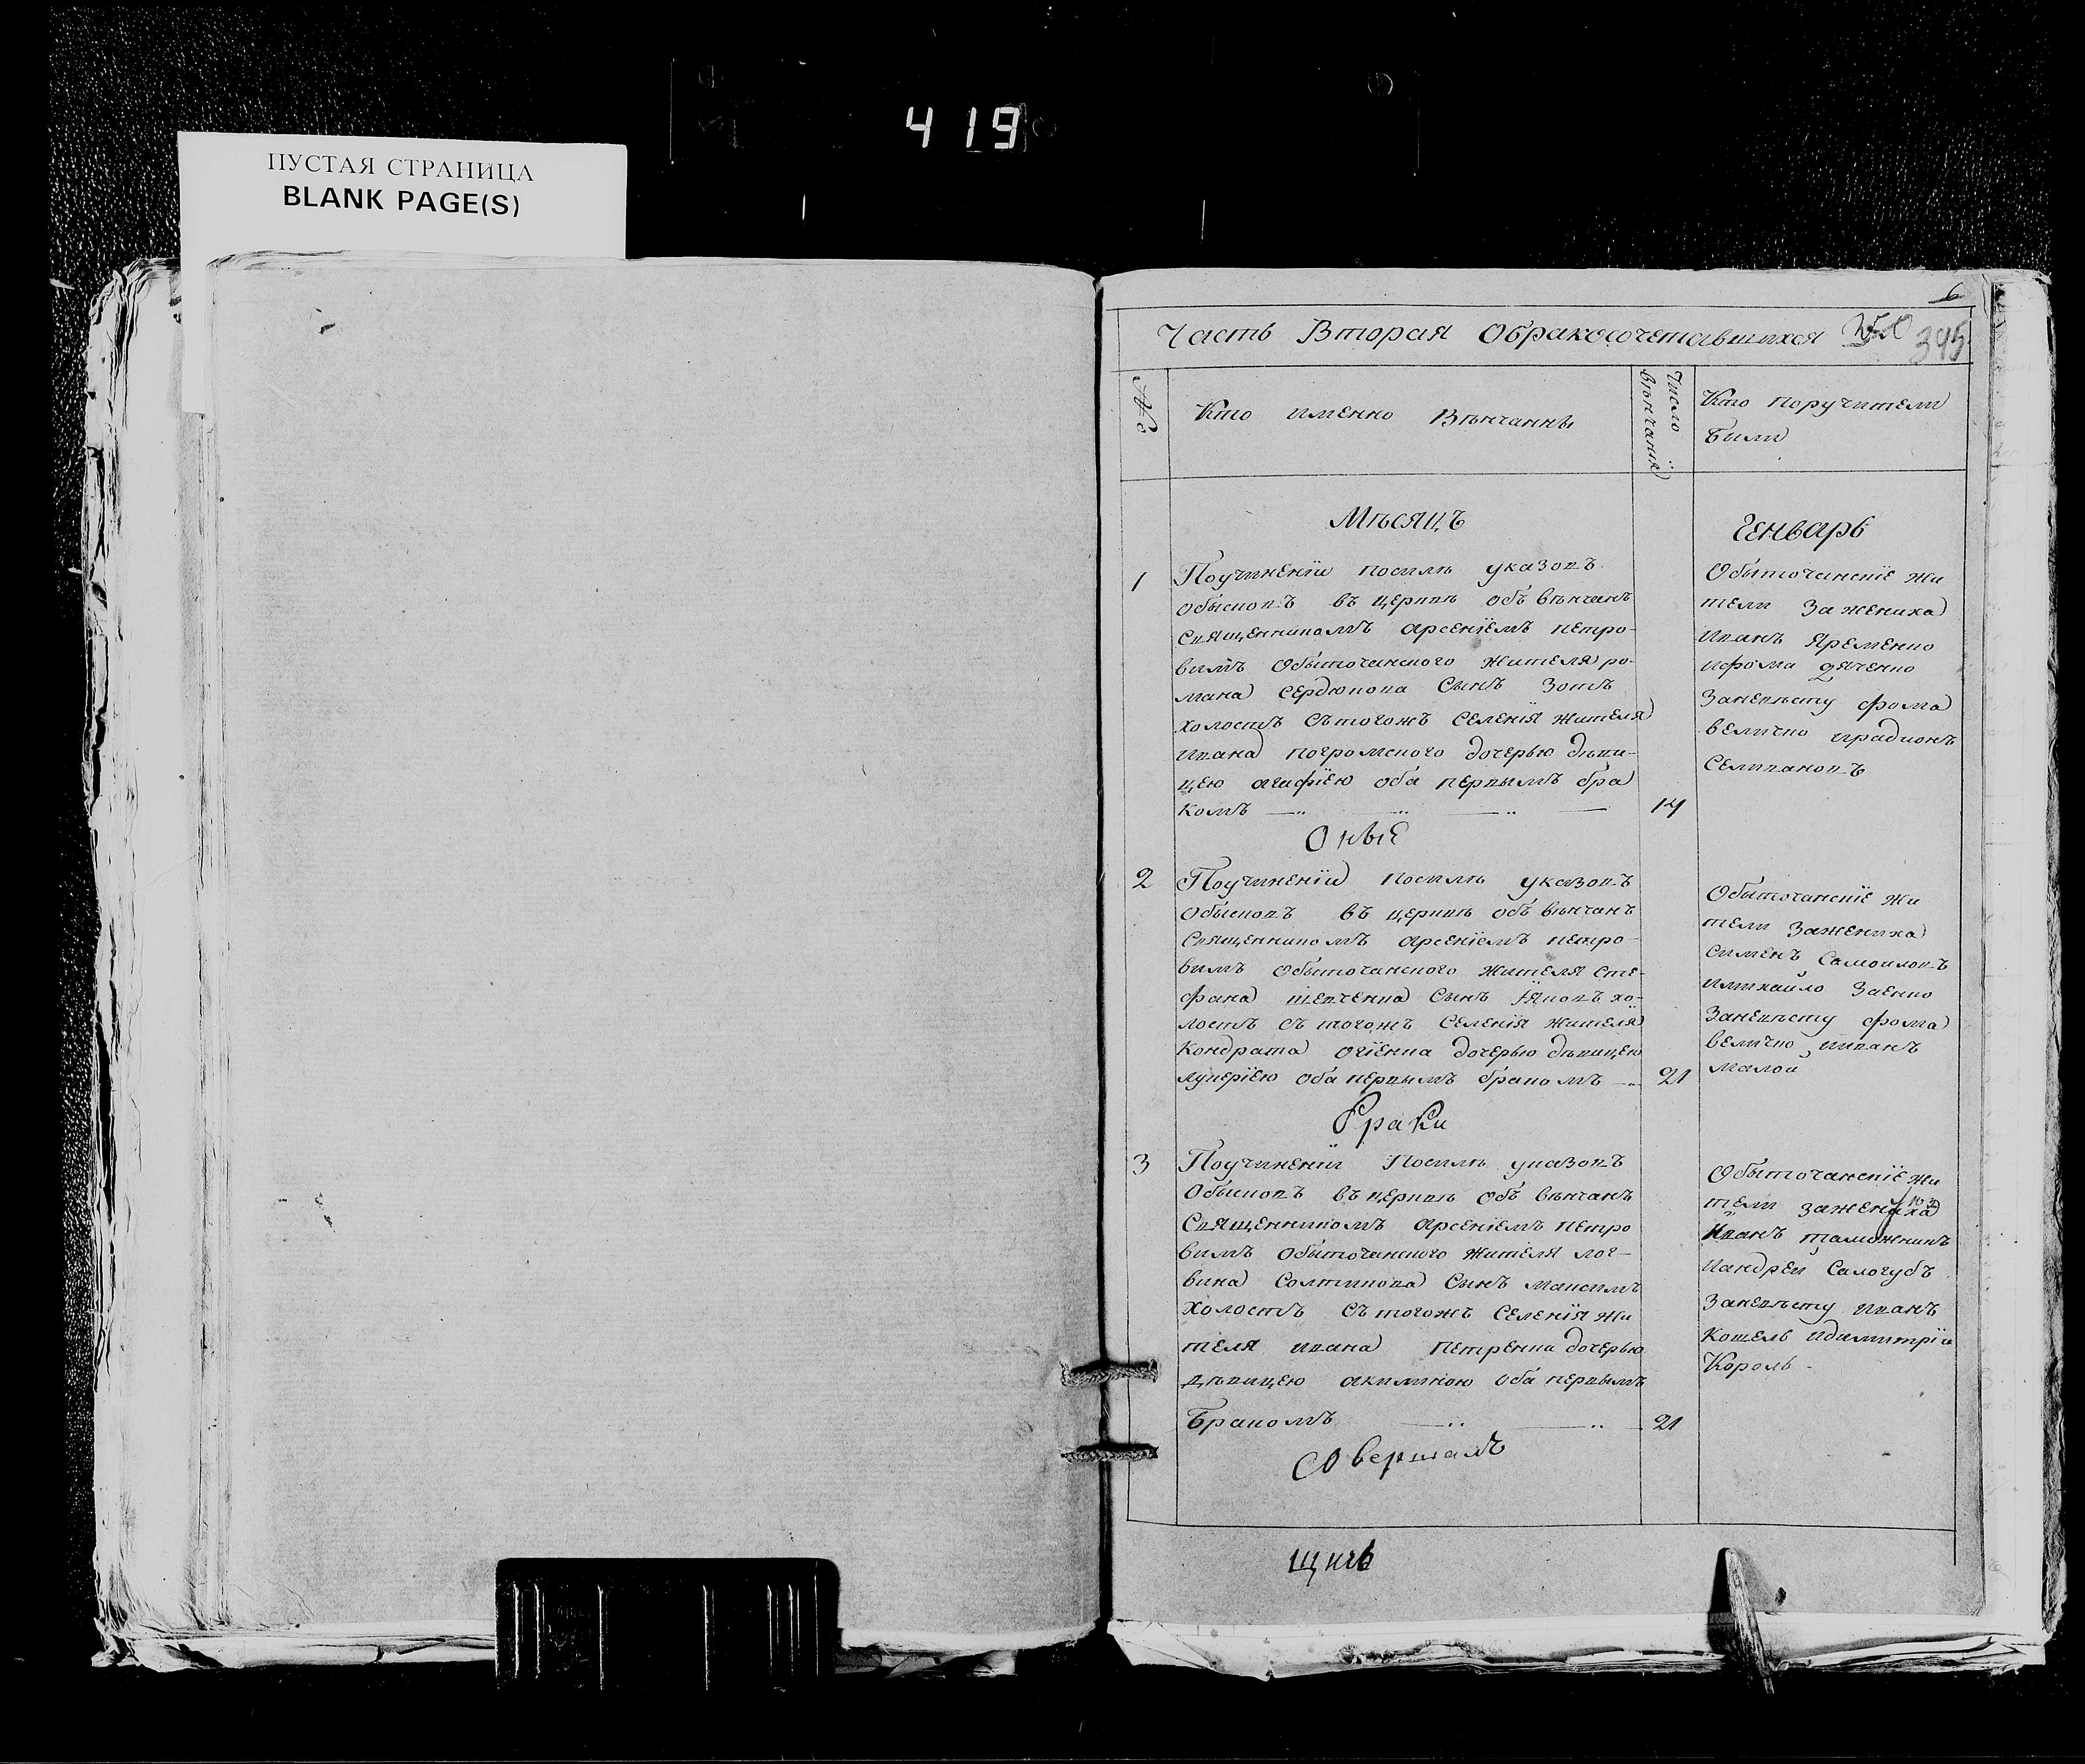 419
ПУСТАЯ СТРАНИЦА
BLANK PAGE(S)
6
Часть Вторая Обракосочетавшихся
345
№
Кто именно Вѣнчанны
Число вѣнчанія
Кто поручители
были
Мѣсяцъ
Генварь
1
Поучиненїи посилѣ указовъ
обысковъ въ церквѣ объ вѣнчанъ
священникомъ арсенїемъ петро-
вимъ Обыточанского жителя ро-
мана Сердюкова Сынъ Зотъ
холостъ Стогожъ Селенїя жителя
ивана погромского дочерью дѣви-
цею агафїею оба первымъ бра
комъ
14
Обыточанскїе жи
тели За жениха
иванъ Яременко
ифома дяченко
Заневѣсту фома
величко ирадионъ
Селивановъ
Оные
2
Поучиненїи посилѣ указовъ
обысковъ въ церквѣ объ вѣнчанъ
Священникомъ арсенїемъ петро-
вимъ Обыточанского жителя сте-
фана шевченка Сынъ Яковъ хо-
лостъ Стогожъ Селенїя жителя
Кондрата дочерью дѣвицею
лукерїею оба первымъ бракомъ
21
Обыточанскїе жи
тели Зажениха
сименъ Самойловъ
имихайло Заенко
Заневѣсту фома
величко ииванъ
малой
браки
3
Поучиненїи Посилѣ указовъ
Обысковъ въ церквѣ объ вѣнчанъ
Священникомъ арсенїемъ петро
вимъ Обыточанского жителя лог-
вина Солтикова Сынъ максимъ
холостъ Стогожъ Селенїя жи
теля ивана петренка дочерью
дѣвицею акилиною оба первымъ
бракомъ
21
Обыточанскїе жи
тели зажениха
Иванъ таможникъ
иандрей Салогубъ
Заневѣсту иванъ
Кошель идимитрїи
Король
Совершалъ